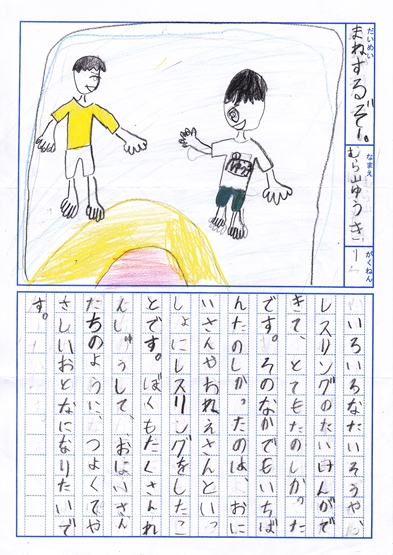 だいめい
まねするぞ。
なまえ
むら山ゆうき
がくねん
1
いろいろなたいそうや、
レスリングのたいけんがで
きて、とてもたのしかった
です。そのなかでもいちば
んたのしかったのは、おに
いさんやおねえさんといっ
しょにレスリングをしたこ
とです。ぼくもたくさんれ
んしゅうして、おにいさん
たちのように、つよくてや
さしいおとなになりたいで
す。